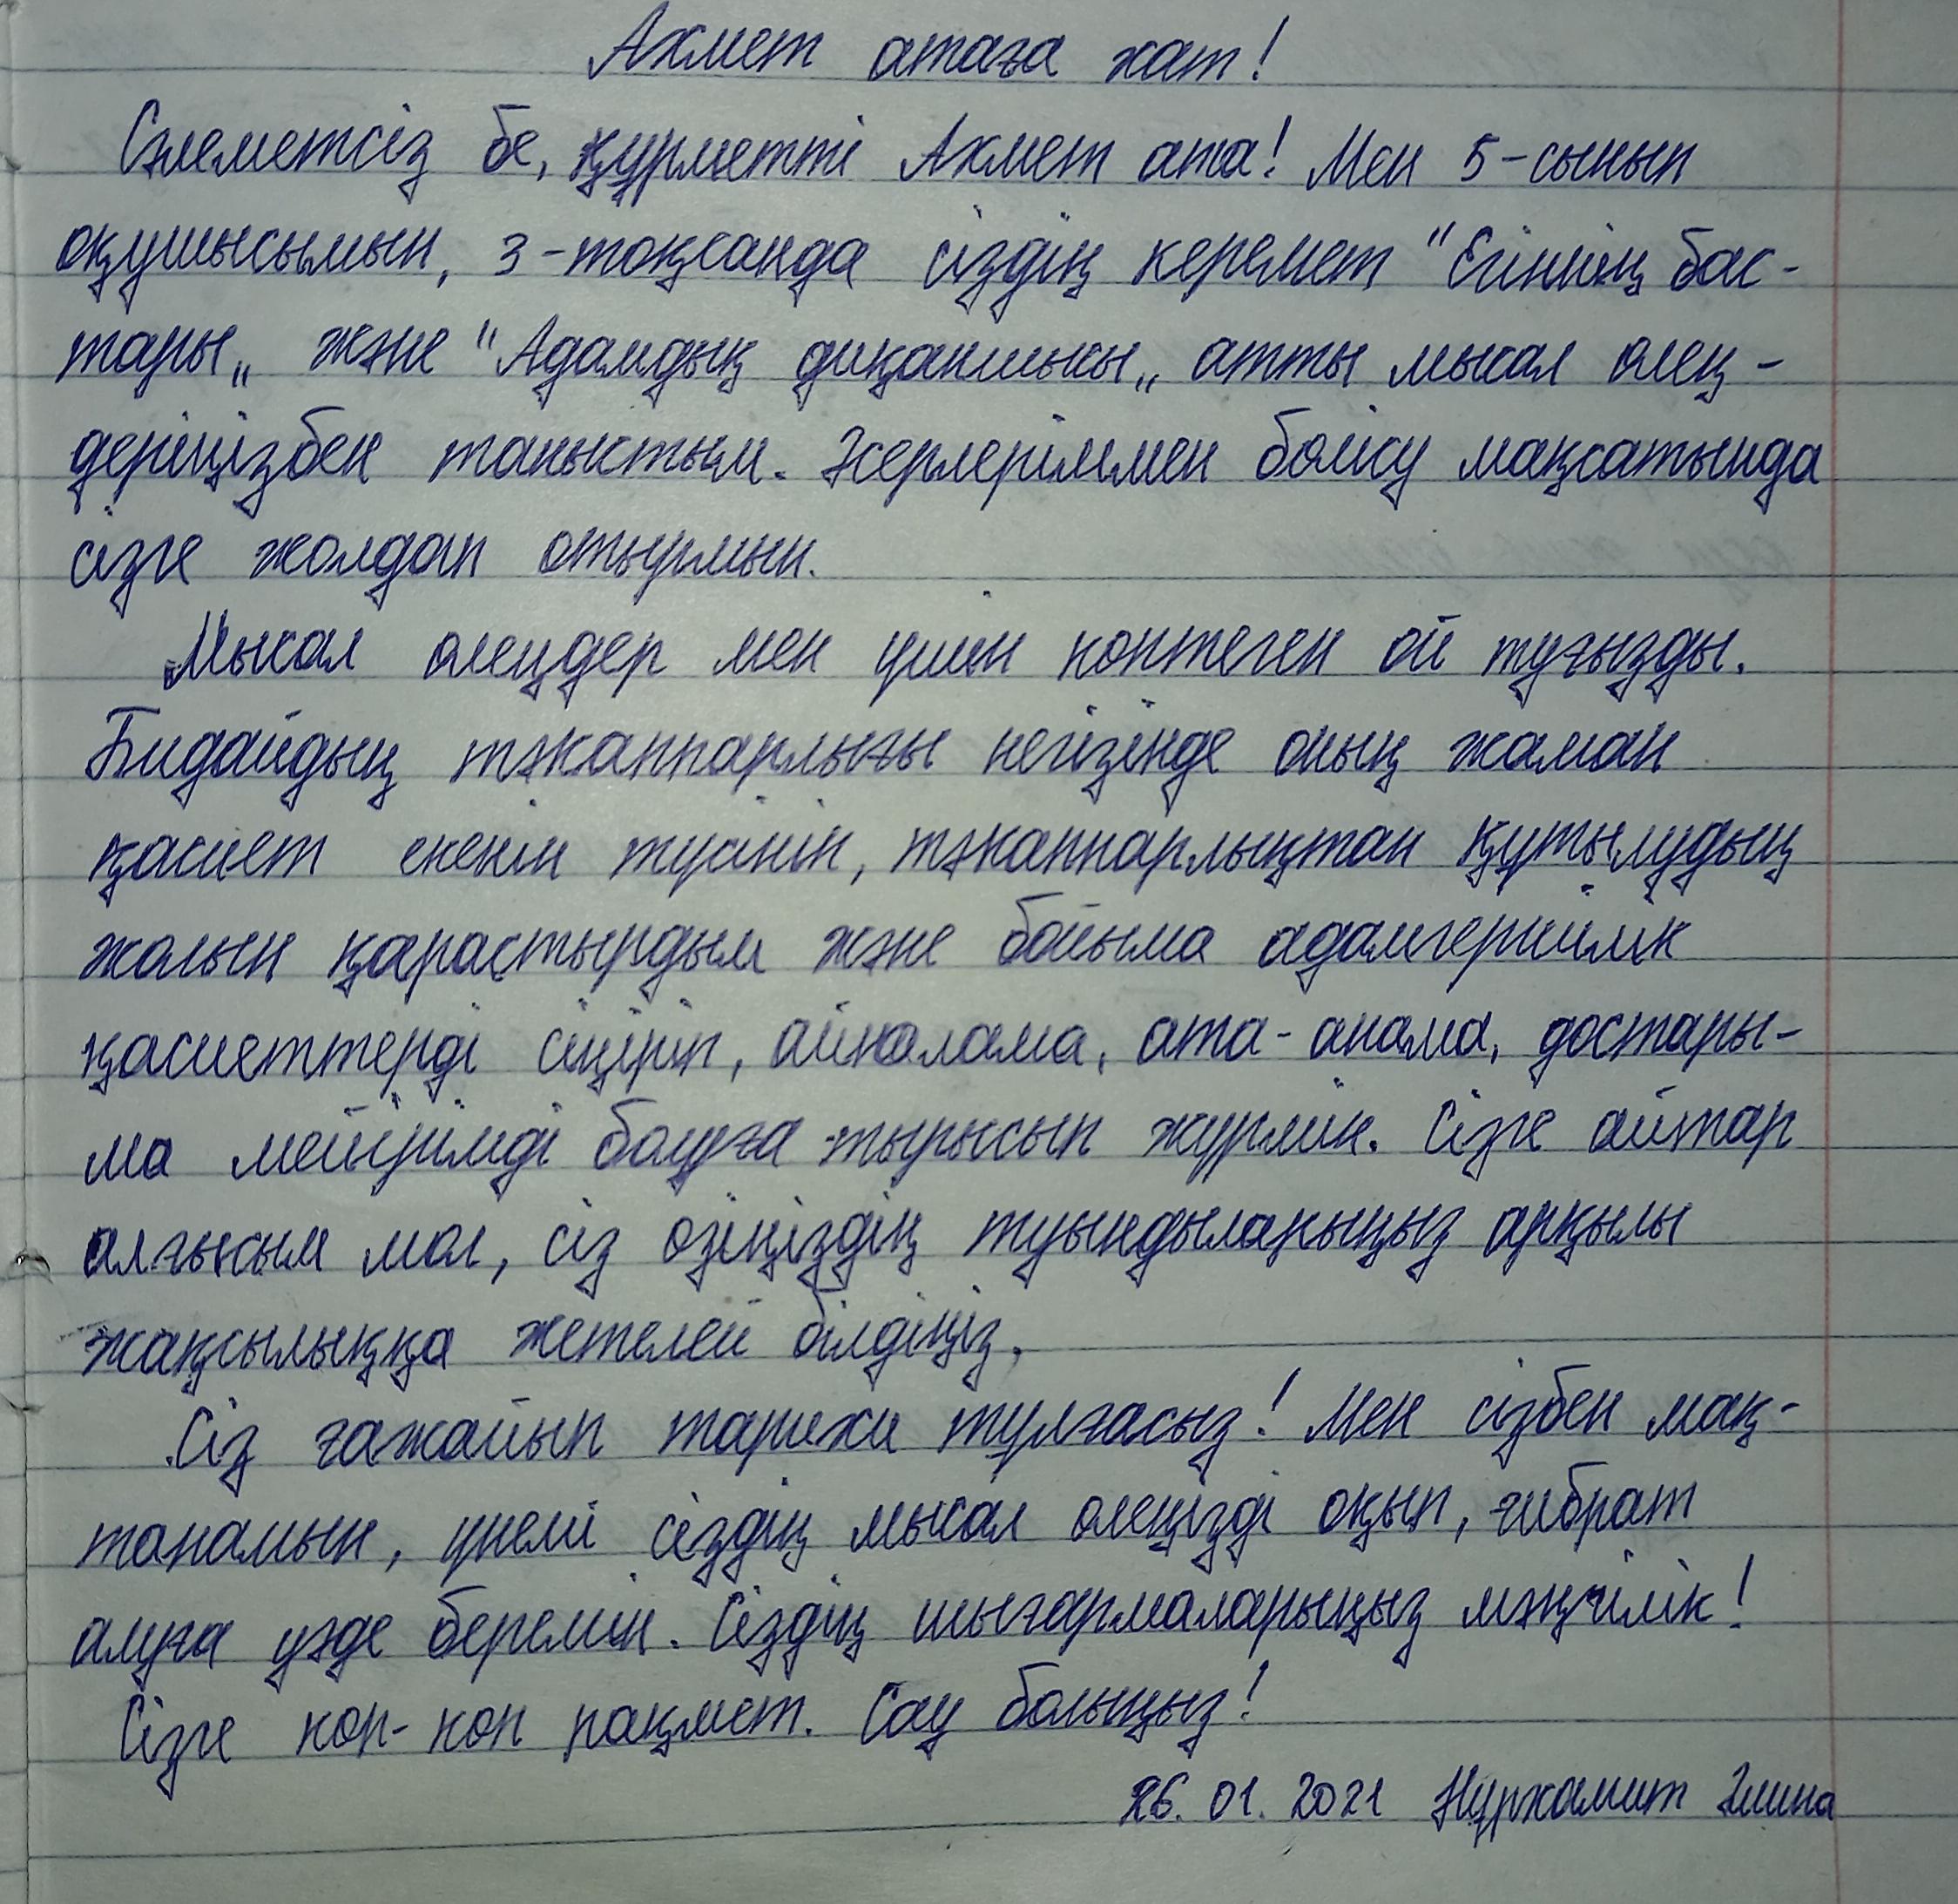 Ахмет атаға хат!
Сәлеметсіз бе, құрметті Ахмет ата! Мен 5-сынып
оқушысымын, 3-тоқсанда сіздің керемет "Егіннің бас-
тары„ және "Адамдық диқаншысы„ атты мысал өлең-
деріңізбен таныстым. Әсерлеріммен бөлісу мақсатында
сізге жолдап отырмын.
Мысал өлеңдер мен үшін көптеген ой туғызды.
Бидайдың тәкаппарлығы негізінде оның жаман
қасиет екенін түсініп, тәкаппарлықтан құтылудың
жолын қарастырдым және бойыма адамгершілік
қасиеттерді сіңіріп, айналама, ата-анама, достары-
ма мейірімді болуға тырысып жүрмін. Сізге айтар
алғысым мол, сіз өзіңіздің туындыларыңыз арқылы
жақсылыққа жетелей білдіңіз.
Сіз ғажайып тарихи тұлғасыз! Мен сізбен мақ-
танамын, үнемі сіздің мысал өлеңізді оқып, ғибрат
алуға уәде беремін. Сіздің шығармаларыңыз мәңгілік!
Сізге көп-көп рақмет. Сау болыңыз!
26.01.2021 Нұрхамит Әмина